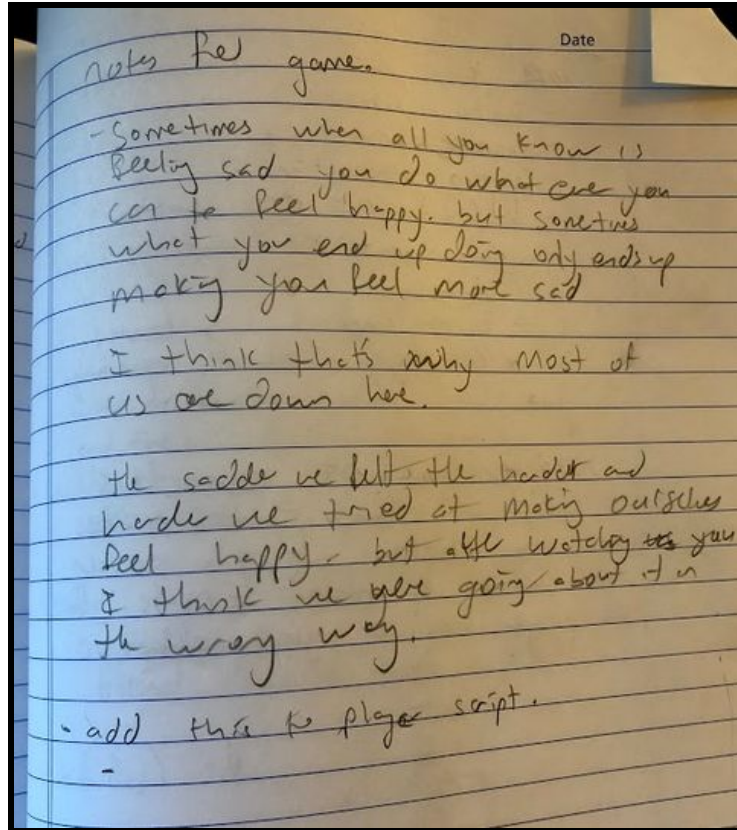 Date
notes for game.
- Sometimes when all you know is
feeling sad you do what ever you
can to feel happy. but sometimes
what you end up doing only ends up
making you feel more sad
I think that's why most of
us are down here.
the sadder we felt the harder and
harder we tried at making ourselves
feel happy. but after watching you
I think we were going about it in
the wrong way.
- add this to player script.
-